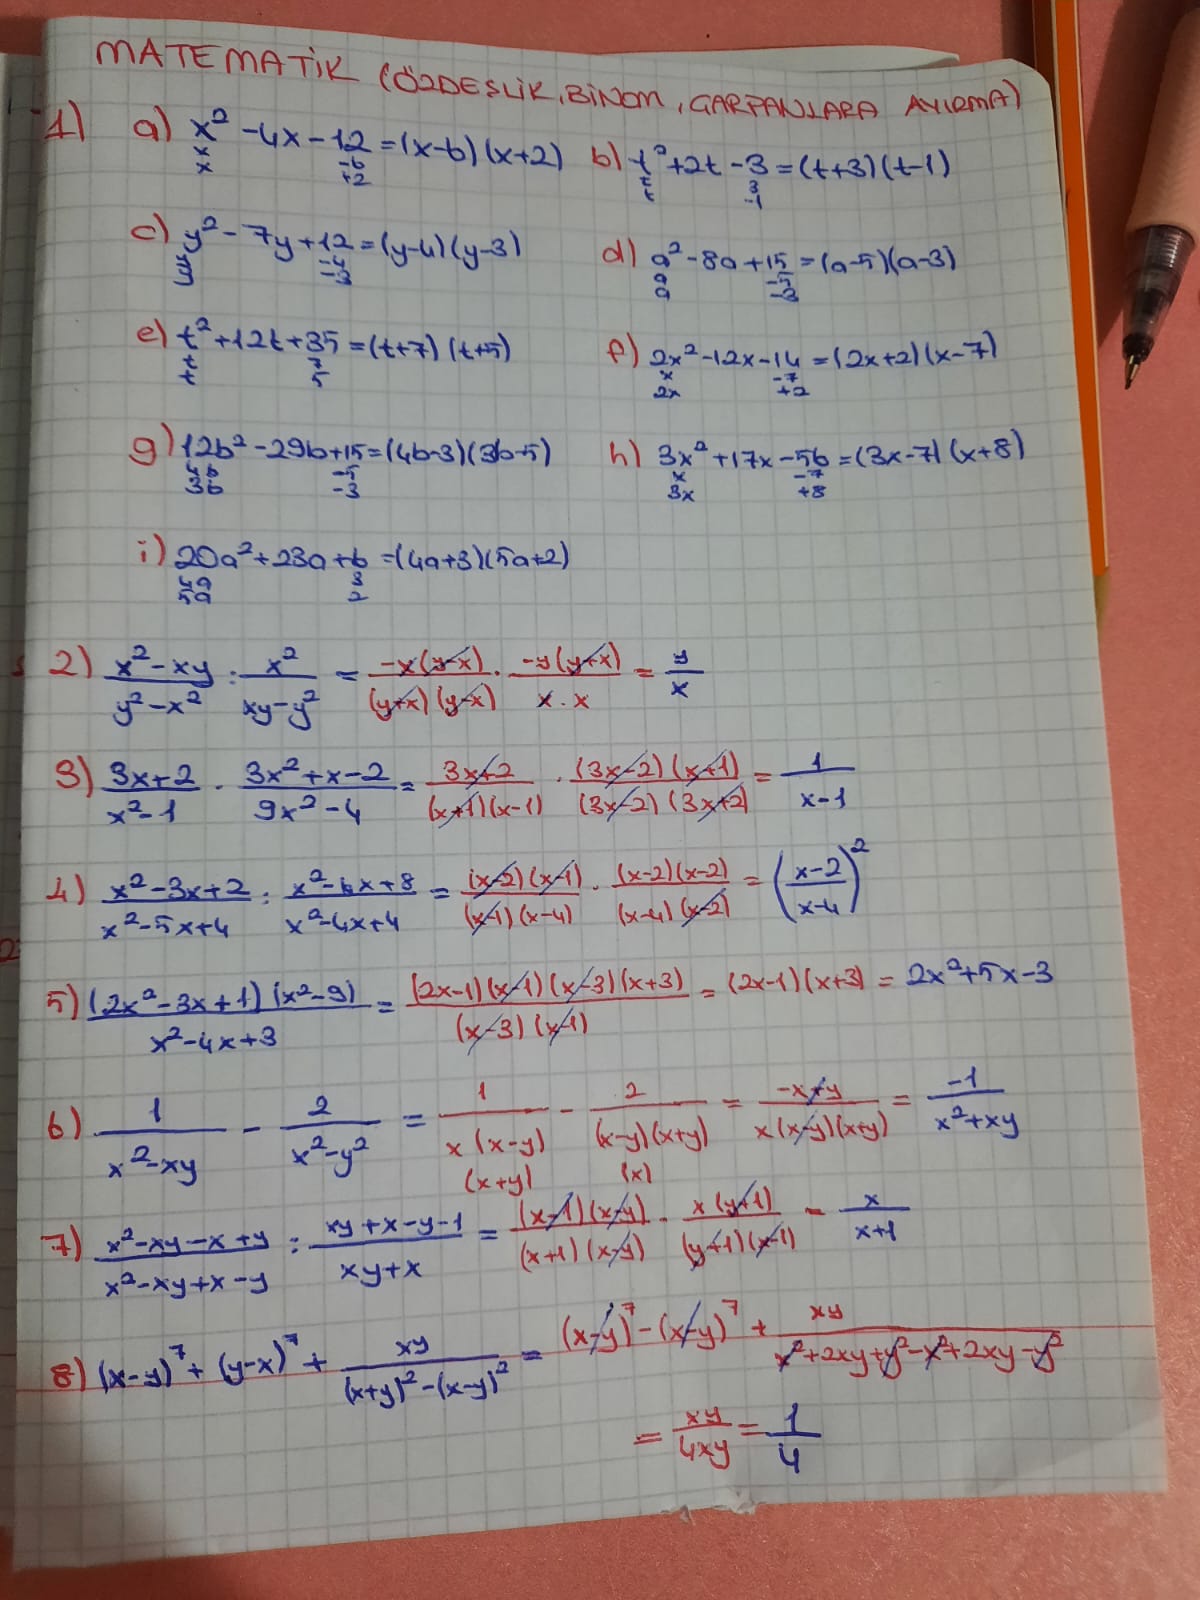 MATEMATİK (ÖZDEŞLİK, BİNOM, ÇARPANLARA AYIRMA)
1) a) x² -4x-12=(x-6)(x+2) b) t²+2t-3=(t+3)(t-1)
x -6 t 3
x +2 t -1
c) y²-7y+12=(y-4)(y-3) d) a²-8a+15=(a-5)(a-3)
y -4 a -5
y -3 a -3
e) t²+12t+35=(t+7)(t+5) f) 2x²-12x-14=(2x+2)(x-7)
t 7 x -7
t 5 2x +2
g) 12b²-29b+15=(4b-3)(3b-5) h) 3x²+17x-56=(3x-7)(x+8)
4b -5 x -7
3b -3 3x +8
i) 20a²+23a+6=(4a+3)(5a+2)
4a 3
5a 2
2) (x²-xy)/(y²-x²) : x²/(xy-y²) = -x(y-x)/(y+x)(y-x) . -y(y+x)/x.x = y/x
3) (3x+2)/(x²-1) . (3x²+x-2)/(9x²-4) = (3x+2)/(x+1)(x-1) . (3x-2)(x+1)/(3x-2)(3x+2) = 1/(x-1)
4) (x²-3x+2)/(x²-5x+4) : (x²-6x+8)/(x²-4x+4) = (x-2)(x-1)/(x-1)(x-4) . (x-2)(x-2)/(x-4)(x-2) = ((x-2)/(x-4))²
5) (2x²-3x+1)(x²-9)/(x²-4x+3) = (2x-1)(x-1)(x-3)(x+3)/(x-3)(x-1) = (2x-1)(x+3) = 2x²+5x-3
6) 1/(x²-xy) - 2/(x²-y²) = 1/x(x-y) - 2/(x-y)(x+y) = (-x+y)/x(x-y)(x+y) = -1/(x²+xy)
(x+y) (x)
7) (x²-xy-x+y)/(x²-xy+x-y) : (xy+x-y-1)/(xy+x) = (x-1)(x-y)/(x+1)(x-y) . x(y+1)/(y+1)(x-1) = x/(x+1)
8) (x-y)⁷+(y-x)⁷+ xy/((x+y)²-(x-y)²) = (x-y)⁷-(x-y)⁷+ xy/(x²+2xy+y²-x²+2xy-y²)
= xy/4xy = 1/4